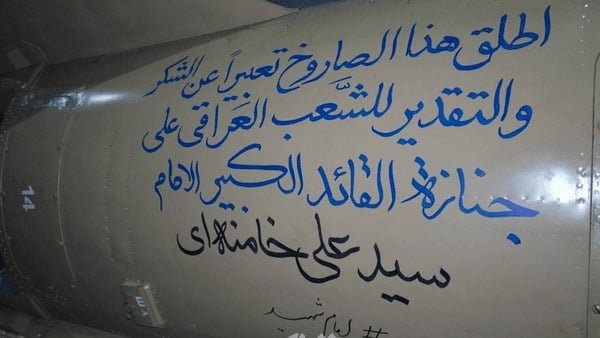 اطلق هذا الصاروخ تعبيراً عن الشكر
والتقدير للشَّعب العَراقي على
جنازة القائد الكبير الامام
سيد علی خامنه‌ای
# امام شهید
14